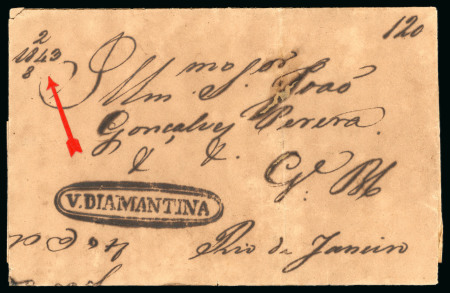 2
1843
8
120
Illm. Sr. major João
Gonçalves Pereira
& &
G. M
V. DIAMANTINA
Rio de Janeiro